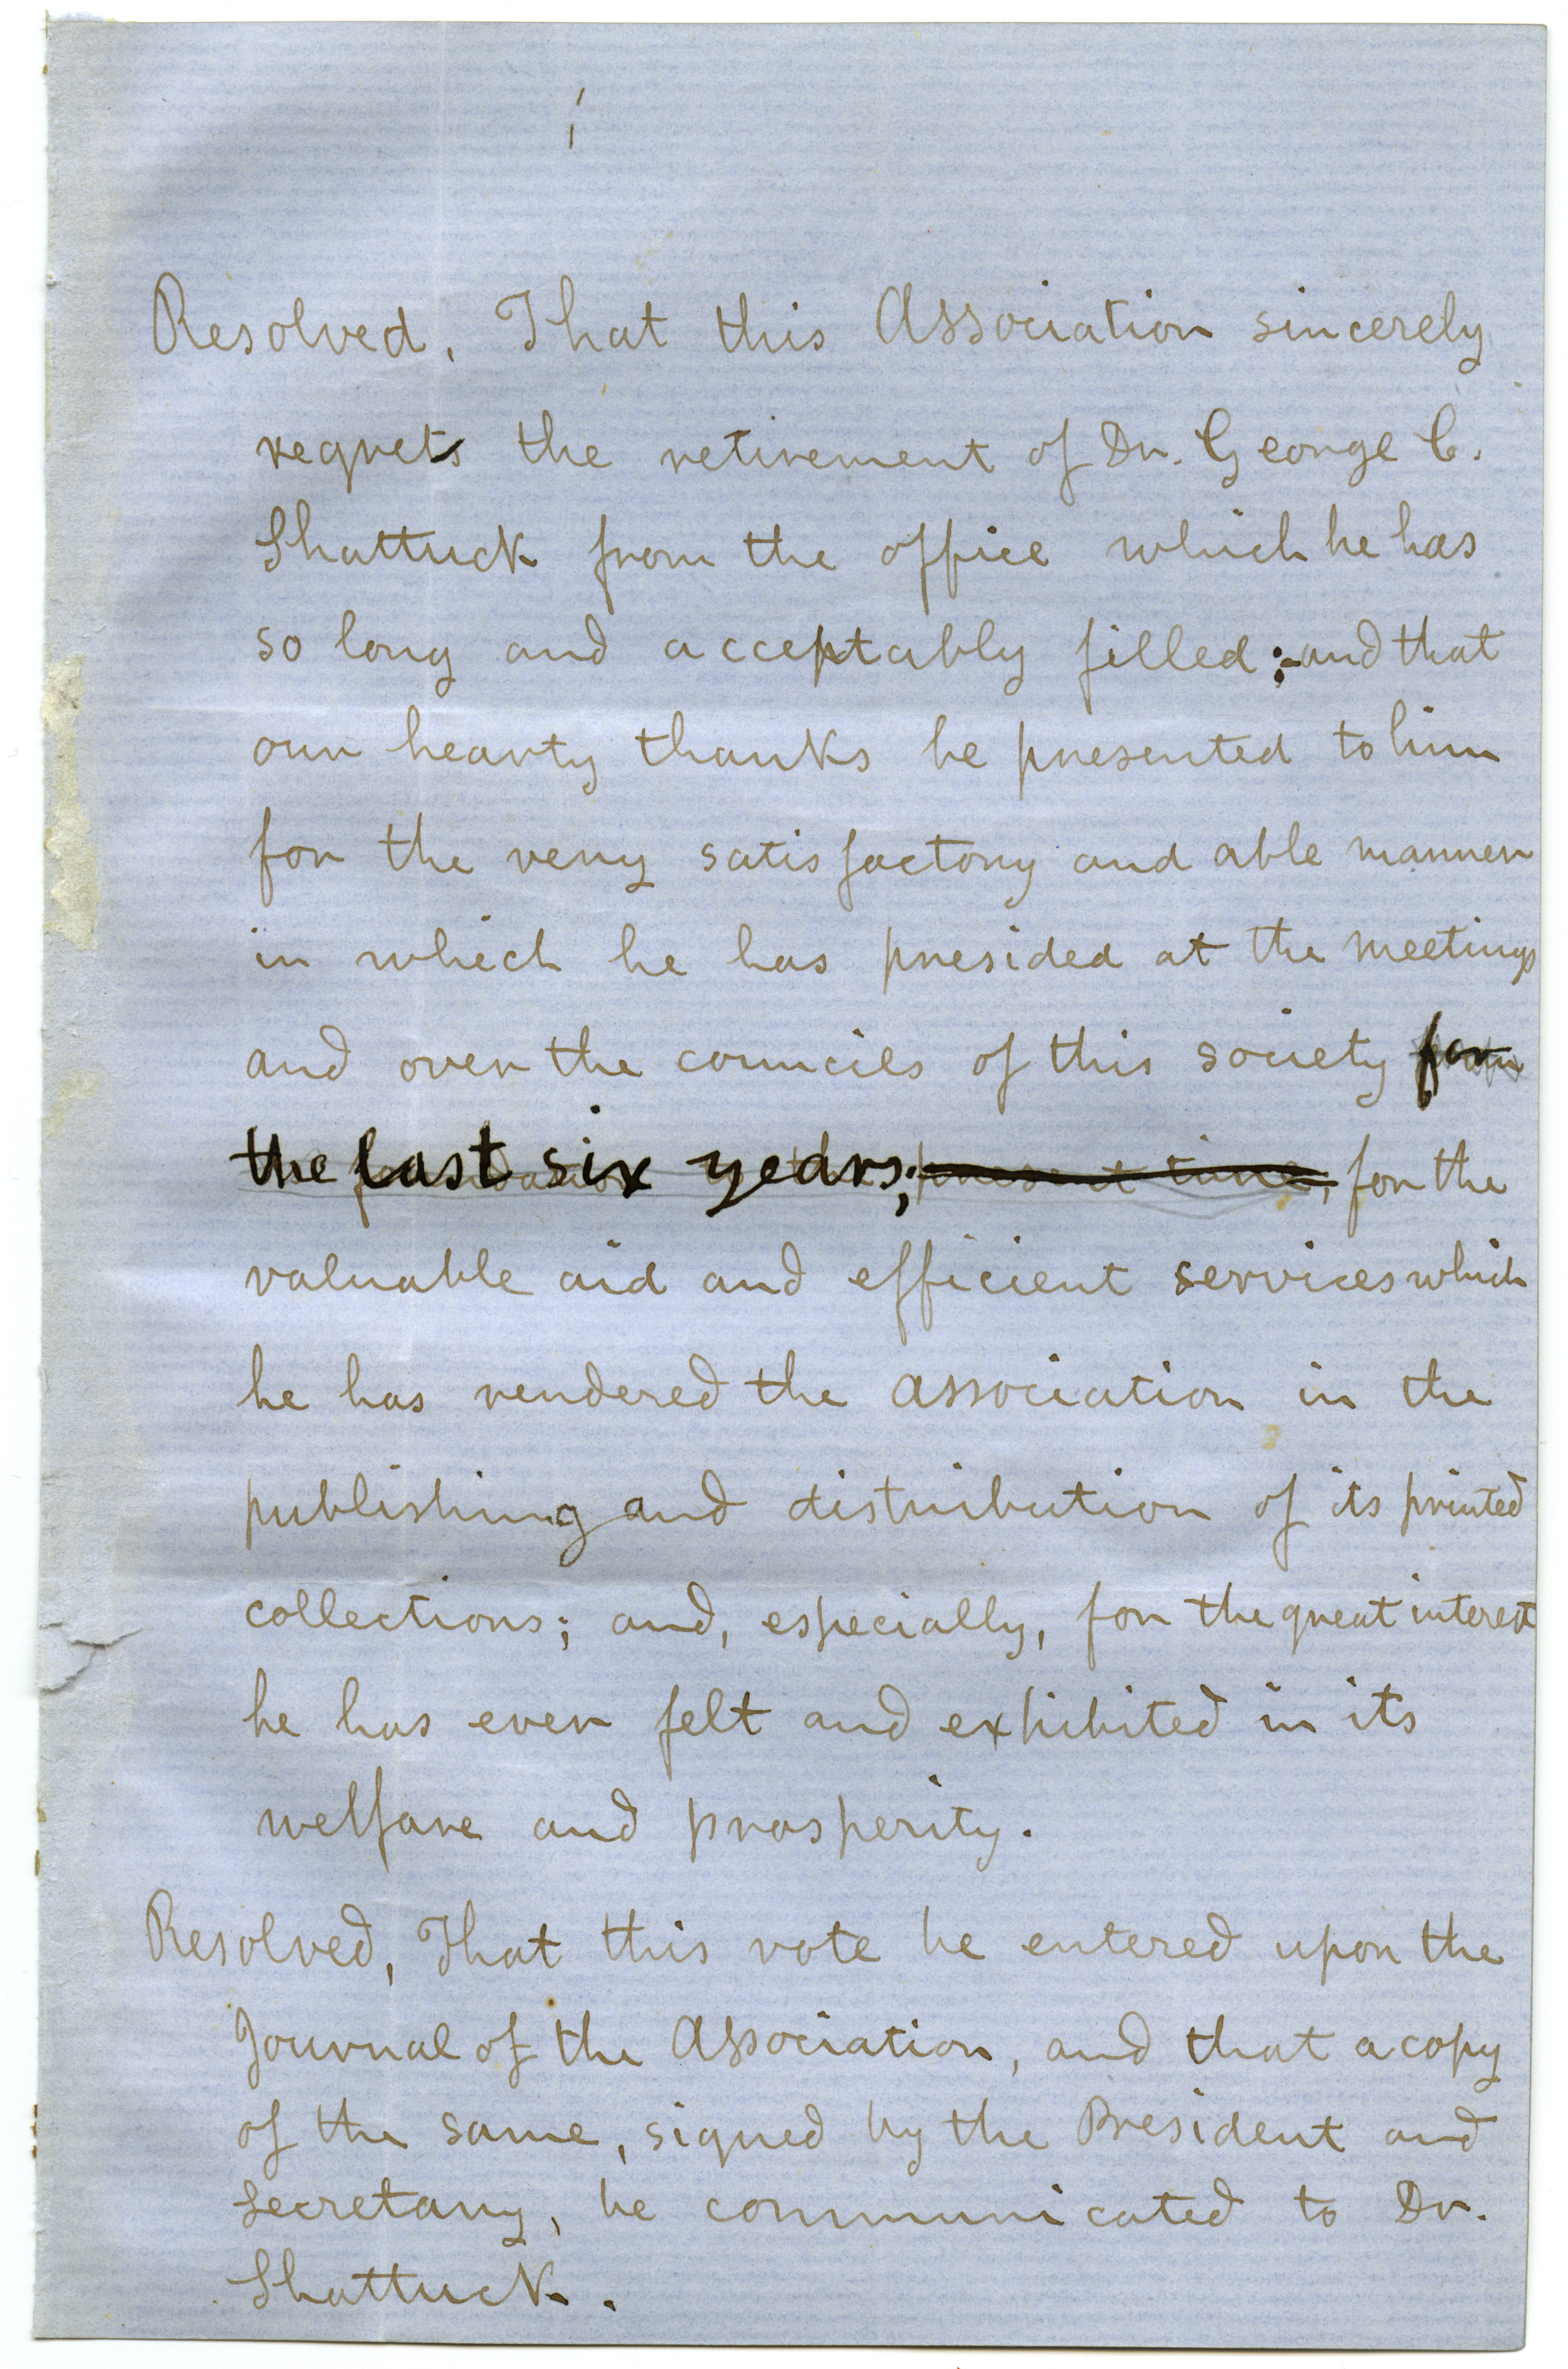 Resolved, That this Association sincerely
regrets the retirement of Dr. George C.
Shattuck from the office which he has
so long and acceptably filled; and that
our hearty thanks be presented to him
for the very satisfactory and able manner
in which he has presided at the meetings
and over the councils of this society for
the last six years; present time, for the
valuable aid and efficient services which
he has rendered the association in the
publishing and distribution of its printed
collections; and, especially, for the great interest
he has ever felt and exhibited in its
welfare and prosperity.
Resolved, That this vote be entered upon the
Journal of the Association, and that a copy
of the same, signed by the President and
Secretary, be communicated to Dr.
Shattuck.